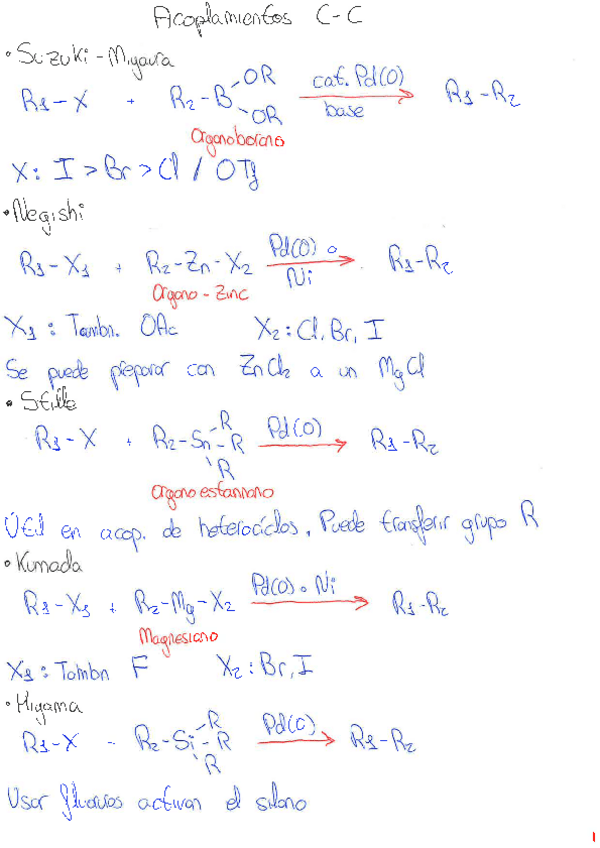 Acoplamientos C-C
• Suzuki-Miyaura
R1-X + R2-B OR OR cat. Pd(0) base R1-R2
Organoborano
X: I > Br > Cl / OTf
• Negishi
R1-X1 + R2-Zn-X2 Pd(0) o Ni R1-R2
Organo-Zinc
X1: Tambn. OAc X2: Cl, Br, I
Se puede preparar con ZnCl2 a un MgCl
• Stille
R1-X + R2-Sn-R R R Pd(0) R1-R2
Organoestannano
Útil en acop. de heterociclos. Puede transferir grupo R
• Kumada
R1-X1 + R2-Mg-X2 Pd(0) o Ni R1-R2
Magnesiano
X1: Tambn F X2: Br, I
• Hiyama
R1-X - R2-Si-R R R Pd(0) R1-R2
Usar fluoruros activan el silano
1